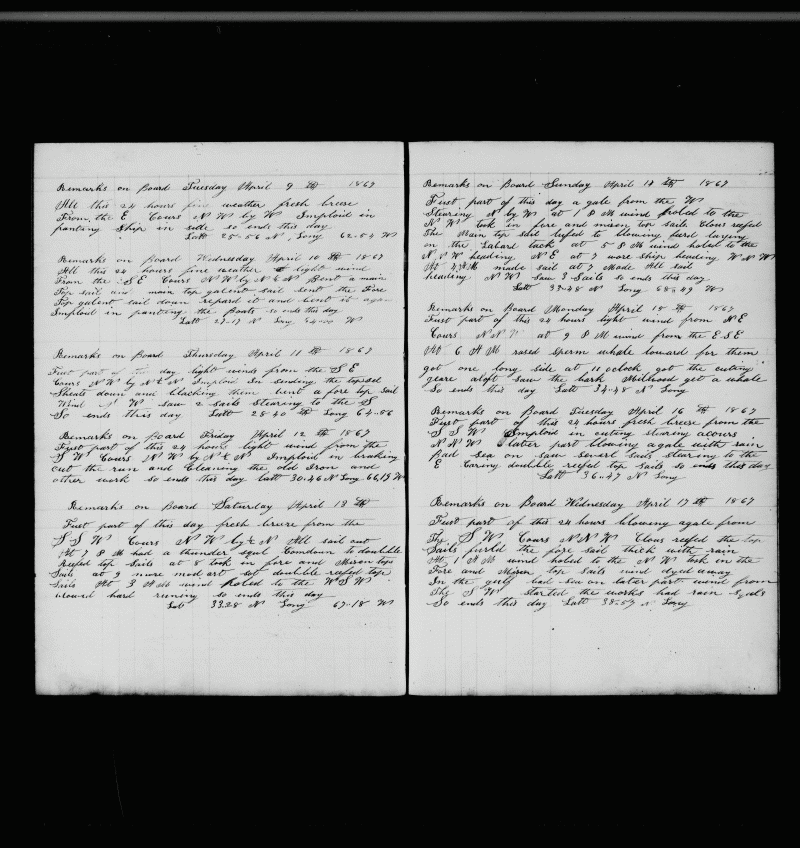 Remarks on Board Tuesday April 9 th 1867
All this 24 hours fine weather fresh brese
From the E Cours N W by W Imploid in
panting Ship in side so ends this day
Latt 25-56 N, Long 62-54 W
Remarks on Board Wednesday April 10 th 1867
All this 24 hours fine weather light wind
From the S E Cours N W by N & N Bent a main
Top sail and main top galent sail sent the Fore
Top galent sail down repard it and bent it again
Imploid in panting the Boats so ends this day
Latt 27-17 N Long W
Remarks on Board Thursday April 11 th 1867
First part of this day light winds from the S E
Cours N W by N & N Imploid In sending the topsel
Sheats down and blacking them bent a fore top sail
Wind W saw 2 Sails Stearing to the S
So ends this day Latt 28 40 Long 64-56
Remarks on Board Friday April 12 th 1867
Fust part of this 24 hours light wind from the
S W Cours N W by N & N Imploid in braking
out the run and Cleaning the old Iron and
other work so ends this day Latt 30:46 N Long 66,19 W
Remarks on Board Saturday April 13 th
Fust part of this day fresh brese from the
S S W Cours N W by ½ N All sail out
At 7 P M had a thunder squl Comdown to doubble
Reefed top Sails at 8 took in fore and Mison top
Sails at 9 more modart set doubble reefed top
Sails At 3 A M wind holed to the W S W
wound hard runing so ends this day
Latt 33.28 N Long 67-18 W
Remarks on Board Sunday April 14 th 1867
Fust part of this day a gale from the W
Stearing N by W at 1 P M wind holed to the
N W took in fore and mison top sails Clous reefed
The Main top sail reefed to blowing hard laying
on the Labard tack at 5 P M wind holed to the
N N W heading N E at 7 wore ship heading W N W
At 4 A M made sail at 7 Made All sail
heading N W saw 3 Sails so ends this day
Latt 37-48 N Long 68-49 W
Remarks on Board Monday April 15 th 1867
Fust part of this 24 hours light wind from N E
Cours N N W at 9 P M wind from the E S E
At 6 A M rased sperm whale loward for them
got one long side at 11 oclock got the cuting
geare aloft saw the bark Milwood get a whale
So ends this day Latt 34-48 N Long
Remarks on Board Tuesday April 16 th 1867
Fust part of this 24 hours fresh brese from the
S S W Imploid in cuting stearing acours
N N W latter part blowing agale with rain
Bad Sea on saw severl sails stearing to the
E Caring doubble reefed top Sails so ends this day
Latt 36-47 N Long
Remarks on Board Wednesday April 17 th 1867
Fust part of this 24 hours blowing agale from
The S W Cours N N W Clous reefed the top
Sails furld the fore sail thick with rain
At 1 A M wind holed to the N W took in the
Fore and Mison top Sails wind dyed away
In the gulf bad sea on later part wind from
The S W started the works had rain squls
So ends this day Latt 38-57 N Long